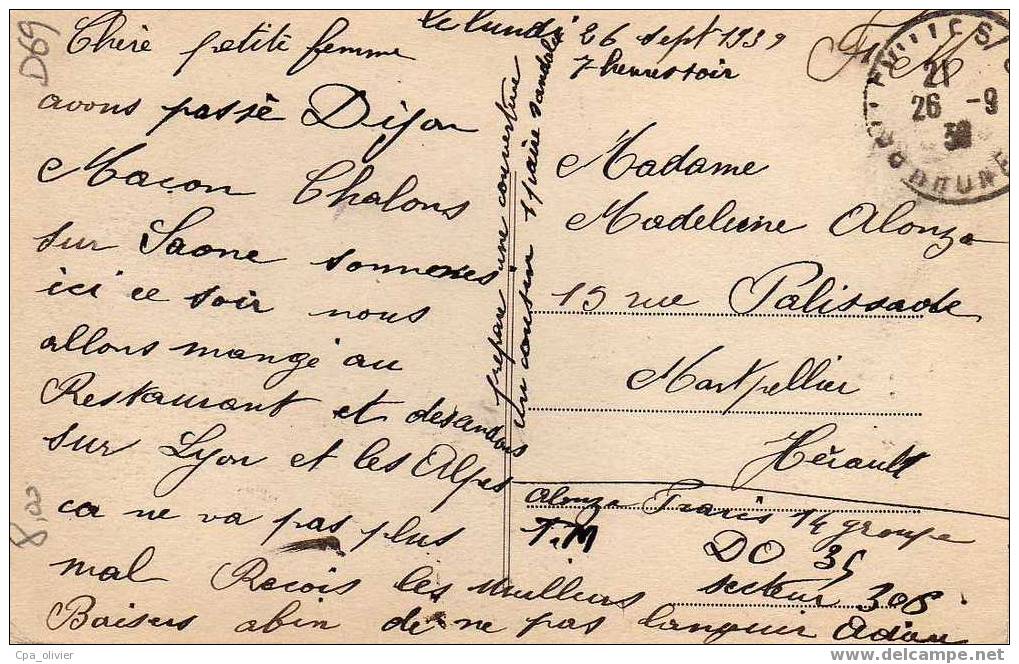 D69
le lundi 26 sept 1939
7 heures soir
F M
21
26 -9
39
Chère petite femme
avons passé Dijon
Macon Chalons
sur Saone sommes
ici ce soir nous
allons mangé au
Restaurant et desandons
sur Lyon et les Alpes
ca ne va pas plus
mal Recois les meilleurs
Baisers abin de ne pas languir Adieu
prepare une couverture
un cousin 1 paire sandale
Madame
Madeleine Alonzo
15 rue Palissade
Montpellier
Hérault
Alonzo Francis 14 groupe
DO 35
secteur 306
8,00
Cpa_olivier
www.delcampe.net